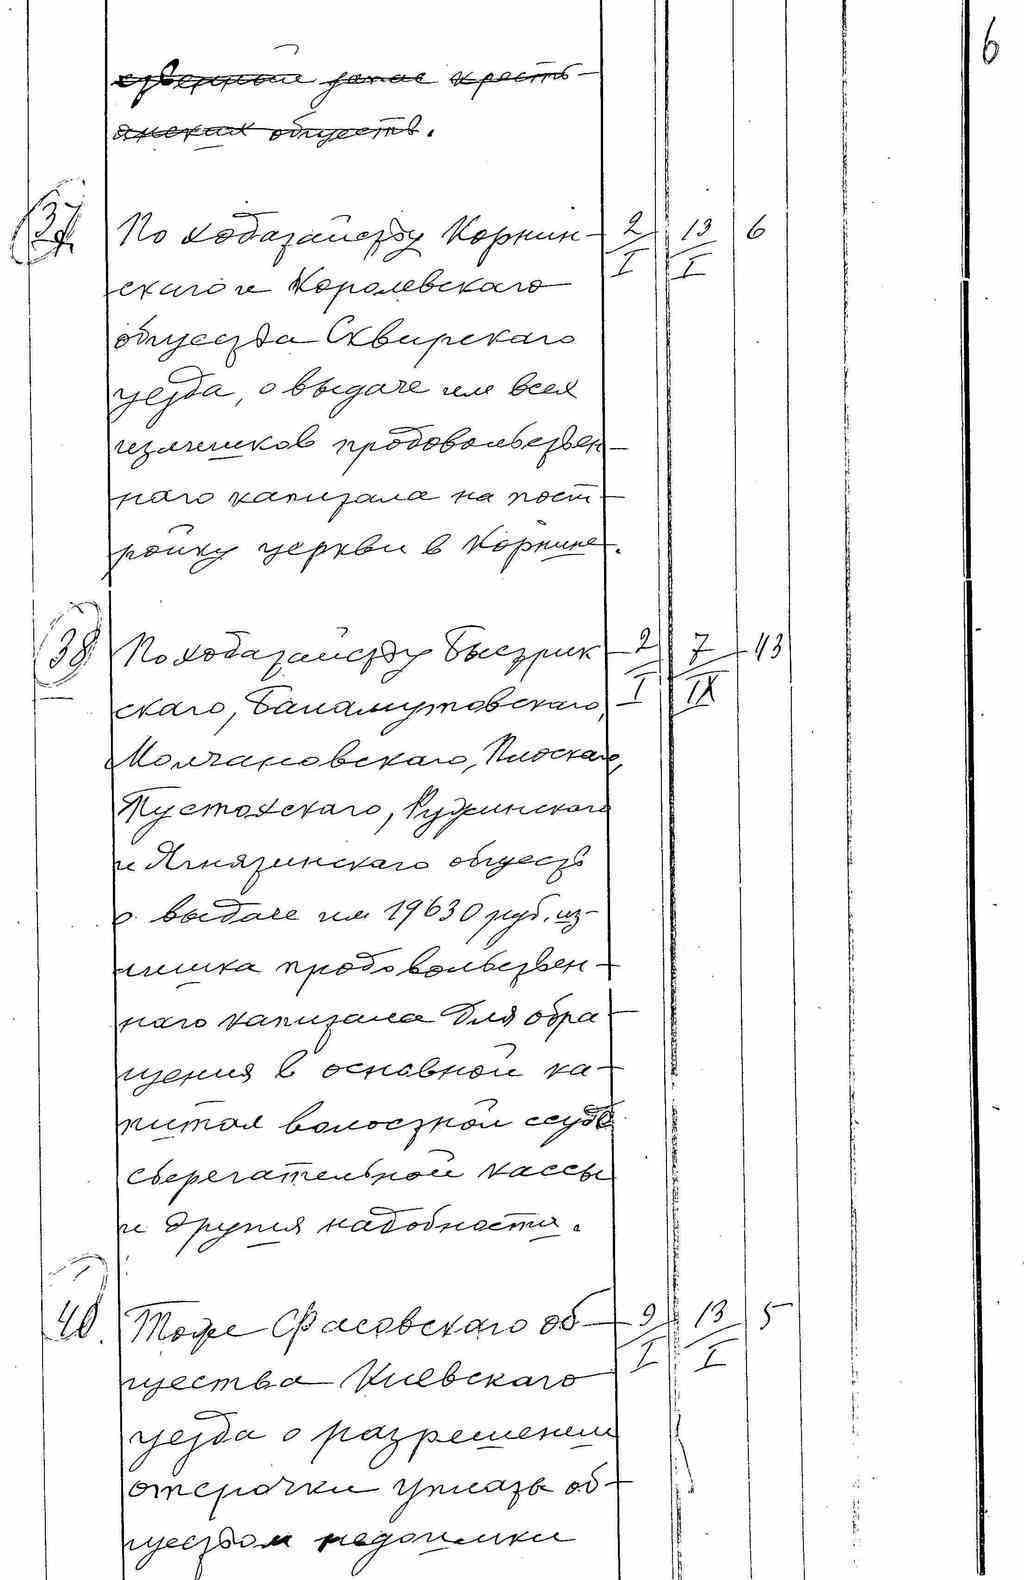 6
ственный запас кресть-
янских обществ.
37 По ходатайству Корнин- 2/I 13/I 6
скаго и Королевскаго
общества Сквирскаго
уезда, о выдаче им всех
излишков продовольствен-
наго капитала на пост-
ройку церкви в Корнине.
38 По ходатайству Быстрик 2/I 7/IX 43
скаго, Баламутовскаго,
Молчановскаго, Плоскаго,
Пустохскаго, Ружинскаго
и Ягнятинскаго обществ
о выдаче им 19630 руб. из-
лишка продовольствен-
наго капитала для обра-
щения в основной ка-
питал волостной ссудо
сберегательной кассы
и другия надобности.
40. Тоже Фасовскаго об- 9/I 13/I 5
щества Киевскаго
уезда о разрешении
отсрочки уплаты об-
ществом недоимки